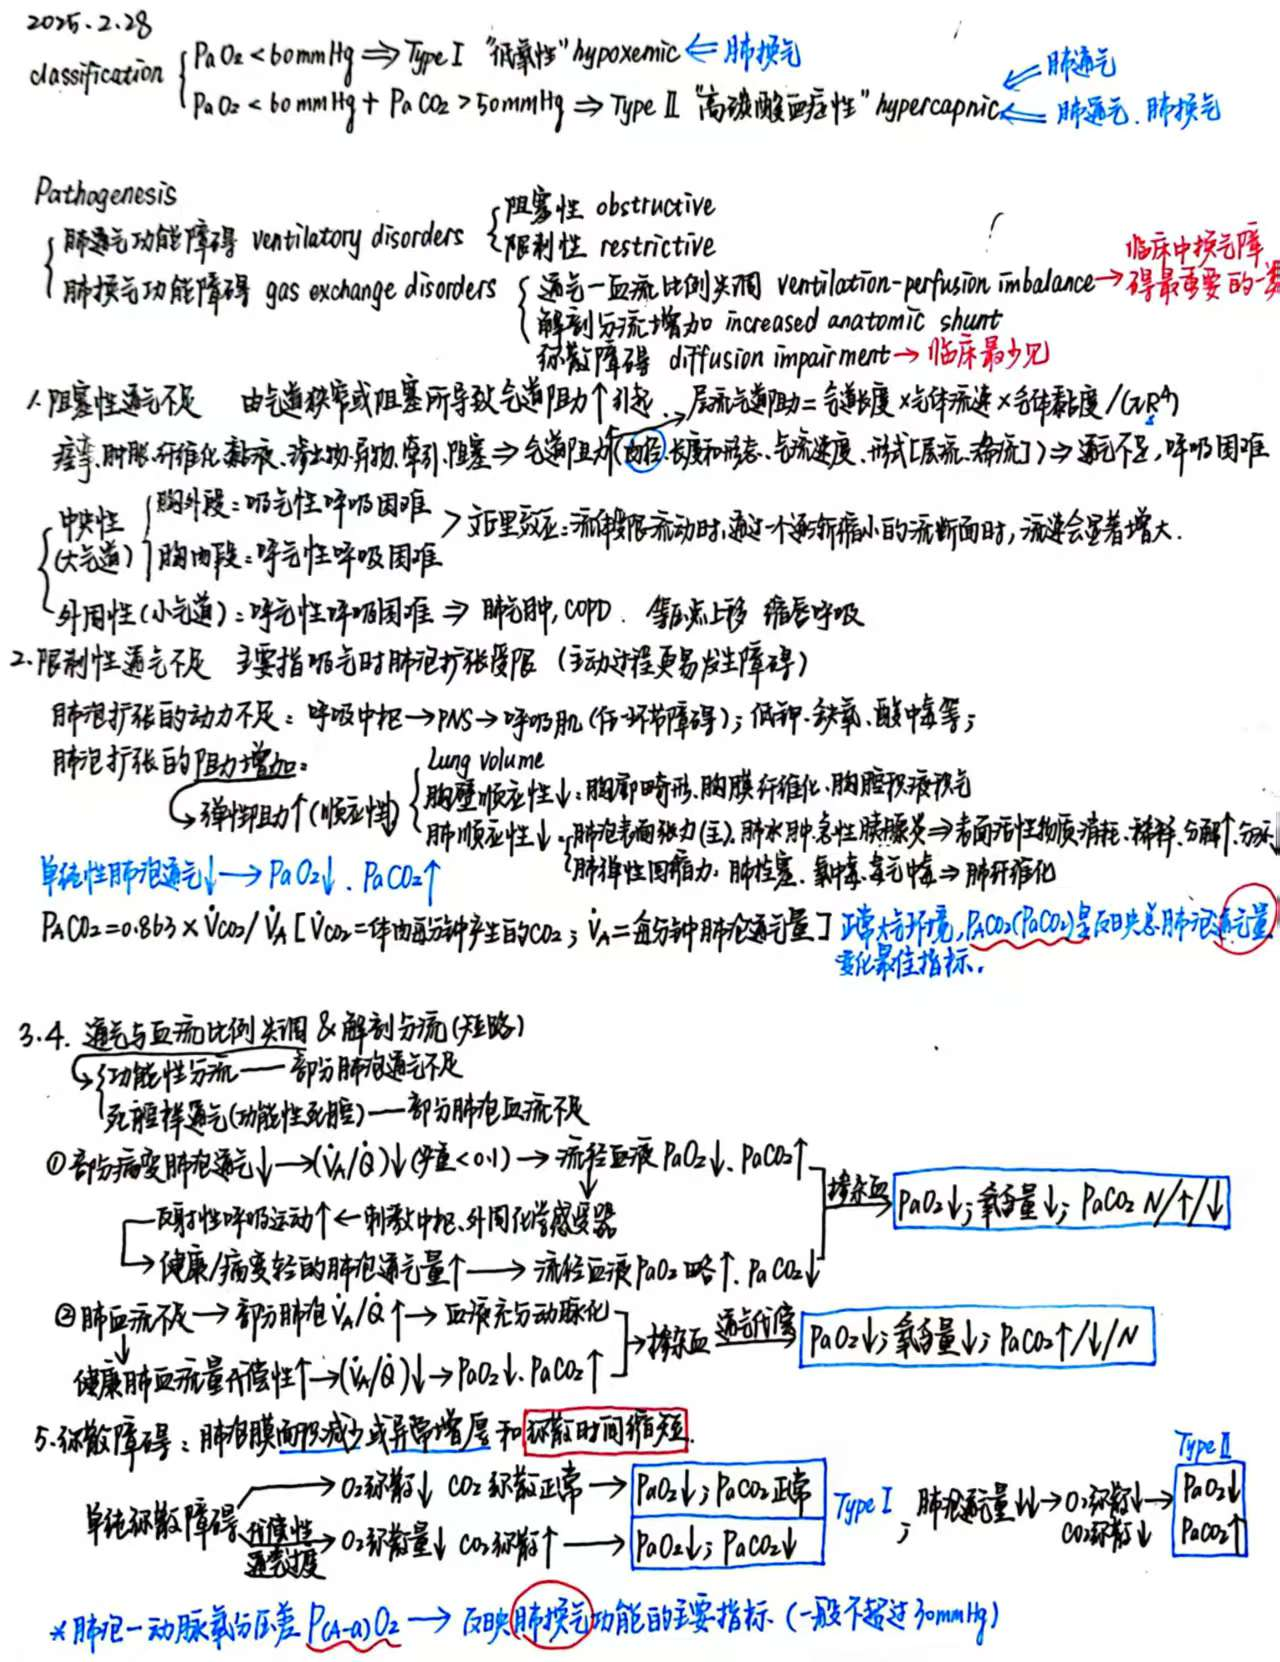 2025.2.28
classification { PaO₂<60mmHg ⇒ Type I “低氧性” hypoxemic ⇐ 肺换气
⇐ 肺通气
PaO₂<60mmHg + PaCO₂>50mmHg ⇒ Type II “高碳酸血症性” hypercapnic ⇐ 肺通气、肺换气
Pathogenesis
肺通气功能障碍 ventilatory disorders { 阻塞性 obstructive
限制性 restrictive
肺换气功能障碍 gas exchange disorders { 通气—血流比例失调 ventilation-perfusion imbalance → 临床中换气障碍最重要的一类
解剖分流增加 increased anatomic shunt
弥散障碍 diffusion impairment → 临床最少见
1.阻塞性通气不足 由气道狭窄或阻塞所导致气道阻力↑引起. 层流气道阻力=气道长度×气体流速×气体黏度/(πR⁴)
痉挛、肿胀、纤维化、黏液、渗出物、异物、牵引、阻塞 ⇒ 气道阻力↑(内径、长度和形态、气流速度、形式[层流、湍流]) ⇒ 通气不足,呼吸困难
中央性(大气道) { 胸外段:吸气性呼吸困难
胸内段:呼气性呼吸困难 > 文丘里效应:流体受限流动时,通过一个逐渐缩小的流断面时,流速会显著增大.
外周性(小气道):呼气性呼吸困难 ⇒ 肺气肿,COPD. 等压点上移 缩唇呼吸
2.限制性通气不足 主要指吸气时肺泡扩张受限 (主动过程更易发生障碍)
肺泡扩张的动力不足:呼吸中枢→PNS→呼吸肌(任一环节障碍);低钾、缺氧、酸中毒等;
肺泡扩张的阻力增加:
Lung volume
↳弹性阻力↑(顺应性↓) { 胸壁顺应性↓:胸廓畸形、胸膜纤维化、胸腔积液积气
肺顺应性↓ { 肺泡表面张力(主).肺水肿、急性胰腺炎⇒表面活性物质消耗、稀释、分解↑、分泌↓
肺弹性回缩力:肺栓塞、氧中毒、毒气中毒⇒肺纤维化
单纯性肺泡通气↓→PaO₂↓、PaCO₂↑
PACO₂=0.863×V̇CO₂/V̇A [V̇CO₂=体内每分钟产生的CO₂; V̇A=每分钟肺泡通气量] 正常大气环境,PACO₂(PaCO₂)是反映总肺泡通气量
变化最佳指标.
3.4. 通气与血流比例失调 & 解剖分流(短路)
↳ { 功能性分流——部分肺泡通气不足
死腔样通气(功能性死腔)——部分肺泡血流不足
①部分病变肺泡通气↓→(V̇A/Q̇)↓(严重<0.1)→流经血液PaO₂↓、PaCO₂↑
掺杂血→ PaO₂↓;氧含量↓;PaCO₂ N/↑/↓
反射性呼吸运动↑←刺激中枢、外周化学感受器
→健康/病变轻的肺泡通气量↑→流经血液PaO₂略↑、PaCO₂↓
②肺血流不足→部分肺泡V̇A/Q̇↑→血液充分动脉化
→掺杂血 通气代偿→ PaO₂↓;氧含量↓;PaCO₂↑/↓/N
健康肺血流量代偿性↑→(V̇A/Q̇)↓→PaO₂↓、PaCO₂↑
5.弥散障碍:肺泡膜面积减少或异常增厚和弥散时间缩短.
Type II
单纯弥散障碍 →O₂弥散↓ CO₂弥散正常→ PaO₂↓;PaCO₂正常
Type I ; 肺泡通气量↓↓→O₂弥散↓ CO₂弥散↓→ PaO₂↓ PaCO₂↑
代偿性通气过度→O₂弥散量↓ CO₂弥散↑→ PaO₂↓;PaCO₂↓
*肺泡—动脉氧分压差 P(A-a)O₂→反映肺换气功能的主要指标.(一般不超过30mmHg)